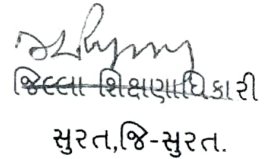 જિલ્લા શિક્ષણાધિકારી
સુરત,જિ-સુરત.